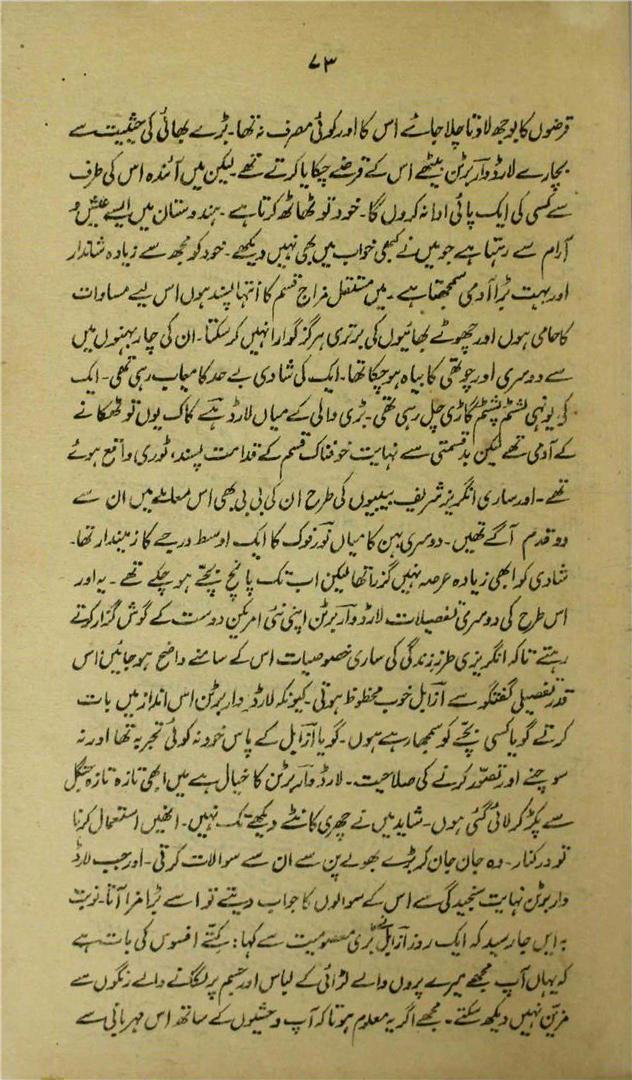 ۷۳
قرضوں کا بوجھ لادتا چلا جائے اس کا اور کوئی مصرف نہ تھا۔ بڑے بھائی کی حیثیت سے
بچارے لارڈ وار برٹن بیٹھے اس کے قرضے چکایا کرتے تھے۔ لیکن میں آئندہ اس کی طرف
سے کسی کی ایک پائی ادا نہ کروں گا۔ خود تو ٹھاٹھ کرتا ہے۔ ہندوستان میں ایسے عیش و
آرام سے رہتا ہے جو میں نے کبھی خواب میں بھی نہیں دیکھے۔ خود کو مجھ سے زیادہ شاندار
اور بہت بڑا آدمی سمجھتا ہے۔ میں مستقل مزاج قسم کا انتہا پسند ہوں اس لیے مساوات
کا حامی ہوں اور چھوٹے بھائیوں کی برتری ہرگز گوارا نہیں کر سکتا۔ ان کی چار بہنوں میں
سے دوسری اور چوتھی کا بیاہ ہو چکا تھا۔ ایک کی شادی بے حد کامیاب رہی تھی۔ ایک
کی یونہی لشٹم پشٹم گاڑی چل رہی تھی۔ بڑی والی کے میاں لارڈ ہے کاک یوں تو ٹھکانے
کے آدمی تھے لیکن بدقسمتی سے نہایت خوفناک قسم کے قدامت پسند، ٹوری واقع ہوئے
تھے۔ اور ساری انگریز شریف بیبیوں کی طرح ان کی بی بی بھی اس معاملے میں ان سے
دو قدم آگے تھیں۔ دوسری بہن کا میاں نورفوک کا ایک اوسط درجے کا زمیندار تھا۔
شادی کو ابھی زیادہ عرصہ نہیں گزرا تھا لیکن اب تک پانچ بچے ہو چکے تھے۔ یہ اور
اس طرح کی دوسری تفصیلات لارڈ وار برٹن اپنی نئی امریکن دوست کے گوش گزار کرتے
رہتے تاکہ انگریزی طرز زندگی کی ساری خصوصیات اس کے سامنے واضح ہو جائیں؛ اس
قدر تفصیلی گفتگو سے آزابل خوب محظوظ ہوتی۔ کیونکہ لارڈ وار برٹن اس انداز میں بات
کرتے گویا کسی بچے کو سمجھا رہے ہوں۔ گویا آزابل کے پاس خود نہ کوئی تجربہ تھا اور نہ
سوچنے اور تصور کرنے کی صلاحیت۔ لارڈ وار برٹن کا خیال ہے میں ابھی تازہ تازہ جنگل
سے پکڑ کر لائی گئی ہوں۔ شاید میں نے چھری کانٹے دیکھے تک نہیں۔ انھیں استعمال کرنا
تو درکنار۔ وہ جان جان کر بڑے بھولے پن سے ان سے سوالات کرتی۔ اور جب لارڈ
وار برٹن نہایت سنجیدگی سے اس کے سوالوں کا جواب دیتے تو اسے بڑا مزا آتا۔ نوبت
بہ ایں جا رسید کہ ایک روز آزابل نے بڑی معصومیت سے کہا: کتنے افسوس کی بات ہے
کہ یہاں آپ مجھے میرے پروں والے لڑائی کے لباس اور جسم پر لگانے والے رنگوں سے
مزین نہیں دیکھ سکتے۔ مجھے اگر یہ معلوم ہوتا کہ آپ وحشیوں کے ساتھ اس مہربانی سے